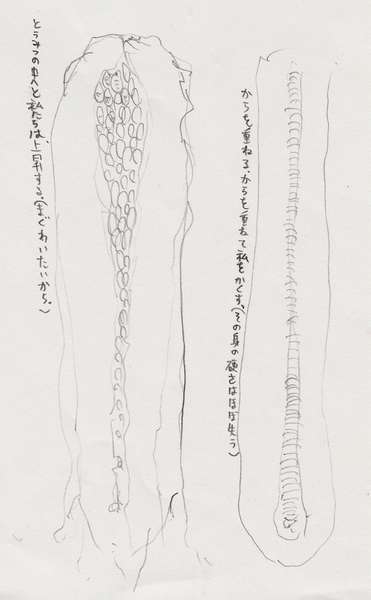 からを重ねる、からを重ねて私をかくす。(その身の硬さはほぼ失う)
とうみつの へと私たちは、上昇する。(まぐわいたいから。)